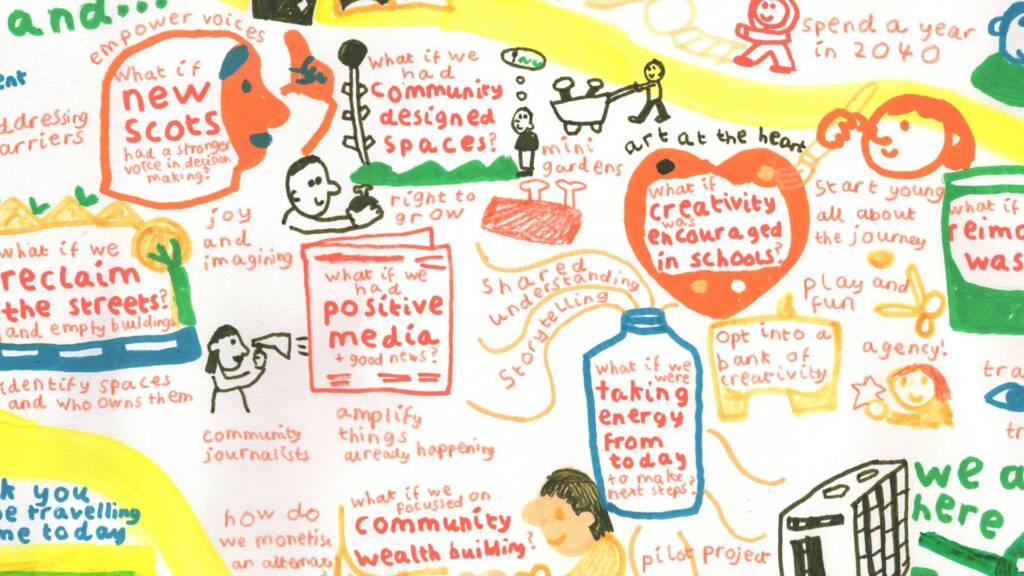 and...
empower voices
What if
new
scots
had a stronger
voice in decision
making?
What if we
had
Community
designed
spaces?
spend a year
in 2040
art at the heart
mini
gardens
right to
grow
joy
and
imagining
what if we
reclaim
the streets?
and empty buildings
identify spaces
and who owns them
what if we
had
positive
media
+ good news?
community
journalists
amplify
things
already happening
Shared
understanding
Storytelling
What if
creativity
was
encouraged
in schools?
Start young
all about
the journey
play and
fun
what if
was
Opt into a
bank of
creativity
agency!
what if we
were
taking
energy
from
today
to make
next steps?
what if we
focussed on
community
wealth building?
how do
we monetise
an
pilot project
you
travelling
today
we
here